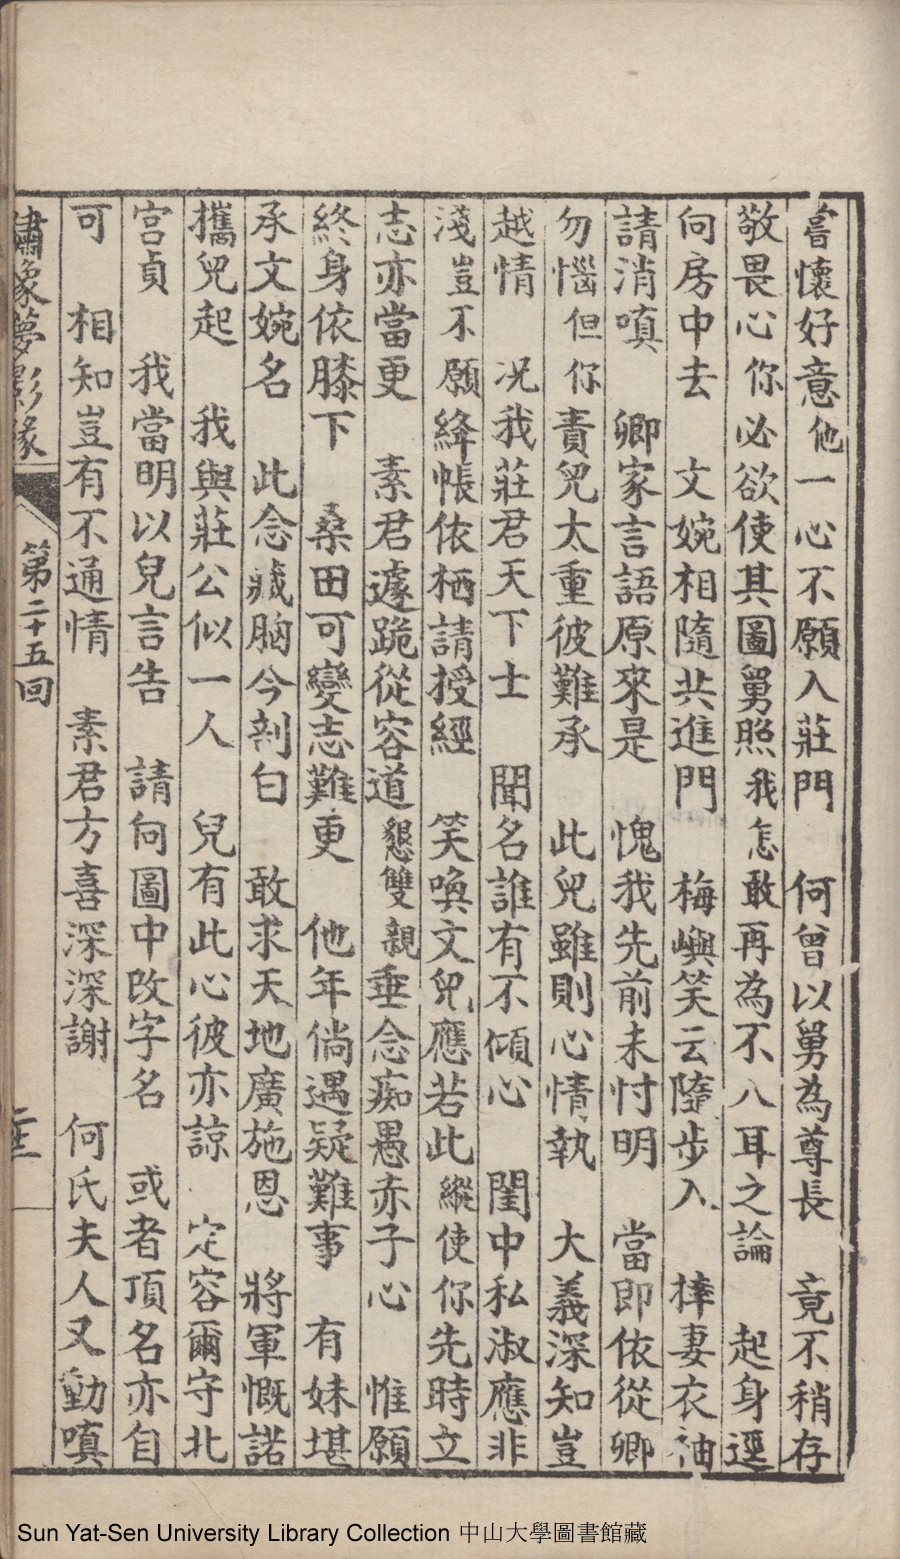 嘗懷好意他一心不願入莊門　何曾以舅為尊長　竟不稍存
敬畏心你必欲使其圖舅照我怎敢再為不入耳之論　起身逕
向房中去　文婉相隨共進門　梅嶼笑云隨步入　捧妻衣袖
請消嗔　卿家言語原來是　愧我先前未忖明　當即依從卿
勿惱但你責兒太重彼難承　此兒雖則心情執　大義深知豈
越情　况我莊君天下士　聞名誰有不傾心　閨中私淑應非
淺豈不願絳帳依栖請授經　笑喚文兒應若此縱使你先時立
志亦當更　素君遽跪從容道懇雙親垂念痴愚赤子心　惟願
終身依膝下　桑田可變志難更　他年倘遇疑難事　有妹堪
承文婉名　此念藏胸今剖白　敢求天地廣施恩　將軍慨諾
攜兒起　我與莊公似一人　兒有此心彼亦諒　定容爾守北
宮貞　我當明以兒言告　請向圖中改字名　或者頂名亦自
可　相知豈有不通情　素君方喜深深謝　何氏夫人又動嗔
繡像夢影緣　第二十五回
Sun Yat-Sen University Library Collection 中山大學圖書館藏